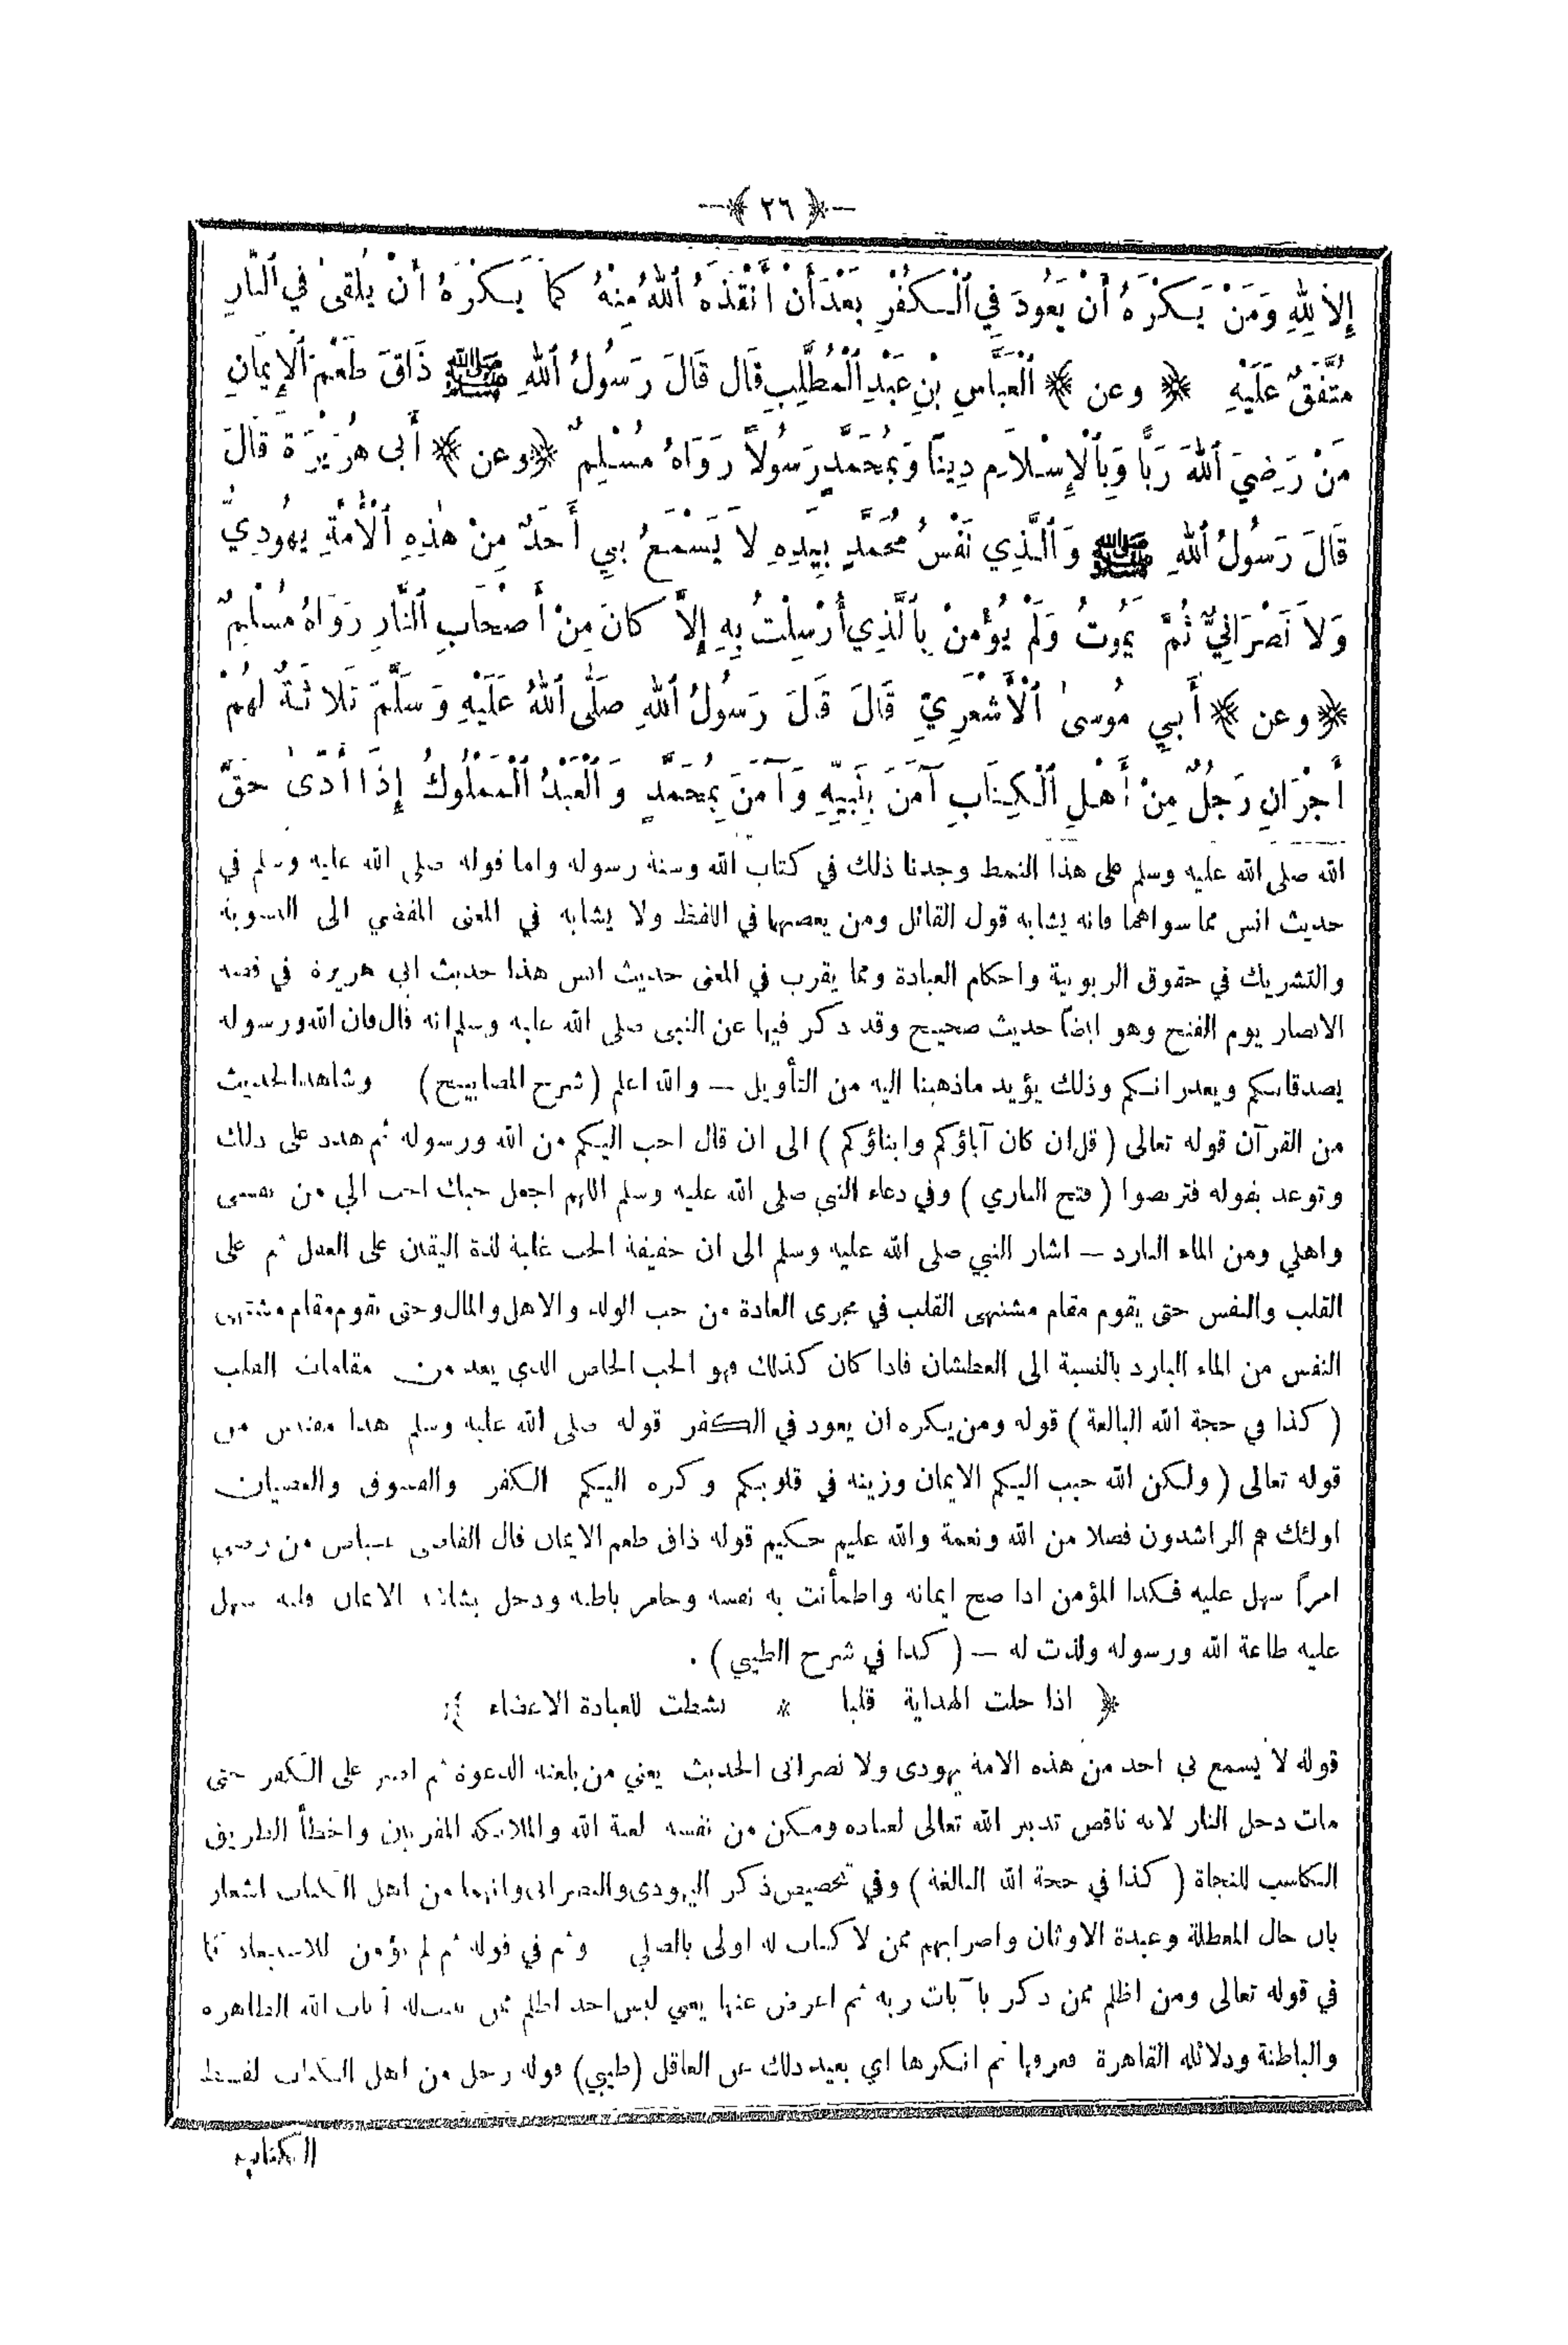 ﴿ ٢٦ ﴾
إِلَّا لِلّٰهِ وَمَنْ يَكْرَهُ أَنْ يَعُودَ فِي ٱلْكُفْرِ بَعْدَ أَنْ أَنْقَذَهُ ٱللّٰهُ مِنْهُ كَمَا يَكْرَهُ أَنْ يُلْقَىٰ فِي ٱلنَّارِ
مُتَّفَقٌ عَلَيْهِ ﴿ وعن ﴾ ٱلْعَبَّاسِ بْنِ عَبْدِ ٱلْمُطَّلِبِ قَالَ قَالَ رَسُولُ ٱللّٰهِ ﷺ ذَاقَ طَعْمَ ٱلْإِيمَانِ
مَنْ رَضِيَ ٱللّٰهَ رَبًّا وَبِٱلْإِسْلَامِ دِينًا وَبِمُحَمَّدٍ رَسُولًا رَوَاهُ مُسْلِمٌ ﴿ وعن ﴾ أَبِى هُرَيْرَةَ قَالَ
قَالَ رَسُولُ ٱللّٰهِ ﷺ وَٱلَّذِي نَفْسُ مُحَمَّدٍ بِيَدِهِ لَا يَسْمَعُ بِي أَحَدٌ مِنْ هٰذِهِ ٱلْأُمَّةِ يَهُودِيٌّ
وَلَا نَصْرَانِيٌّ ثُمَّ يَمُوتُ وَلَمْ يُؤْمِنْ بِٱلَّذِي أُرْسِلْتُ بِهِ إِلَّا كَانَ مِنْ أَصْحَابِ ٱلنَّارِ رَوَاهُ مُسْلِمٌ
﴿ وعن ﴾ أَبِي مُوسىٰ ٱلْأَشْعَرِيِّ قَالَ قَالَ رَسُولُ ٱللّٰهِ صَلَّى ٱللّٰهُ عَلَيْهِ وَسَلَّمَ ثَلَاثَةٌ لَهُمْ
أَجْرَانِ رَجُلٌ مِنْ أَهْلِ ٱلْكِتَابِ آمَنَ بِنَبِيِّهِ وَآمَنَ بِمُحَمَّدٍ وَٱلْعَبْدُ ٱلْمَمْلُوكُ إِذَا أَدَّىٰ حَقَّ
الله صلى الله عليه وسلم على هذا النمط وجدنا ذلك في كتاب الله وسنة رسوله واما قوله صلى الله عليه وسلم في
حديث انس مما سواهما فانه يشابه قول القائل ومن يعصهما في اللفظ ولا يشابه في المعنى المفضي الى التسوية
والتشريك في حقوق الربوبية واحكام العبادة ومما يقرب في المعنى حديث انس هذا حديث ابي هريرة في قصة
الانصار يوم الفتح وهو ايضاً حديث صحيح وقد ذكر فيها عن النبى صلى الله عليه وسلم انه قال فان الله ورسوله
يصدقانكم ويعذرانكم وذلك يؤيد ماذهبنا اليه من التأويل — والله اعلم ( شرح المصابيح ) وشاهد الحديث
من القرآن قوله تعالى ( قل ان كان آباؤكم وابناؤكم ) الى ان قال احب اليكم من الله ورسوله ثم هدد على ذلك
وتوعد بقوله فتربصوا ( فتح الباري ) وفي دعاء النبي صلى الله عليه وسلم اللهم اجعل حبك احب الي من نفسى
واهلي ومن الماء البارد — اشار النبي صلى الله عليه وسلم الى ان حقيقة الحب غلبة لذة اليقين على العقل ثم على
القلب والنفس حتى يقوم مقام مشتهى القلب في مجرى العادة من حب الولد والاهل والمال وحتى تقوم مقام مشتهى
النفس من الماء البارد بالنسبة الى العطشان فاذا كان كذلك فهو الحب الخاص الذي يعد من مقامات القلب
( كذا في حجة الله البالغة ) قوله ومن يكره ان يعود في الكفر قوله صلى الله عليه وسلم هذا مقتبس من
قوله تعالى ( ولكن الله حبب اليكم الايمان وزينه في قلوبكم وكره اليكم الكفر والفسوق والعصيان
اولئك هم الراشدون فضلا من الله ونعمة والله عليم حكيم قوله ذاق طعم الايمان قال القاضى عياض من رضي
امراً سهل عليه فكذا المؤمن اذا صح ايمانه واطمأنت به نفسه وخامر باطنه ودخل بشاشة الايمان قلبه سهل
عليه طاعة الله ورسوله ولذت له — ( كذا في شرح الطيبي ) .
﴿ اذا حلت الهداية قلبا * نشطت للعبادة الاعضاء ﴾
قوله لا يسمع بي احد من هذه الامة يهودى ولا نصرانى الحديث يعني من بلغته الدعوة ثم اصر على الكفر حتى
مات دخل النار لانه ناقض تدبير الله تعالى لعباده ومكن من نفسه لعنة الله والملائكة المقربين واخطأ الطريق
الكاسب للنجاة ( كذا في حجة الله البالغة ) وفي تخصيص ذكر اليهودى والنصرانى وانهما من اهل الكتاب اشعار
بان حال المعطلة وعبدة الاوثان واضرابهم ممن لا كتاب له اولى بالصلي وثم في قوله ثم لم يؤمن للاستبعاد كما
في قوله تعالى ومن اظلم ممن ذكر بآيات ربه ثم اعرض عنها يعني ليس احد اظلم ممن آيات الله الظاهرة
والباطنة ودلائله القاهرة فعرفها ثم انكرها اي بعيد ذلك عن العاقل (طيبي) قوله رجل من اهل الكتاب لفظ
الكتاب